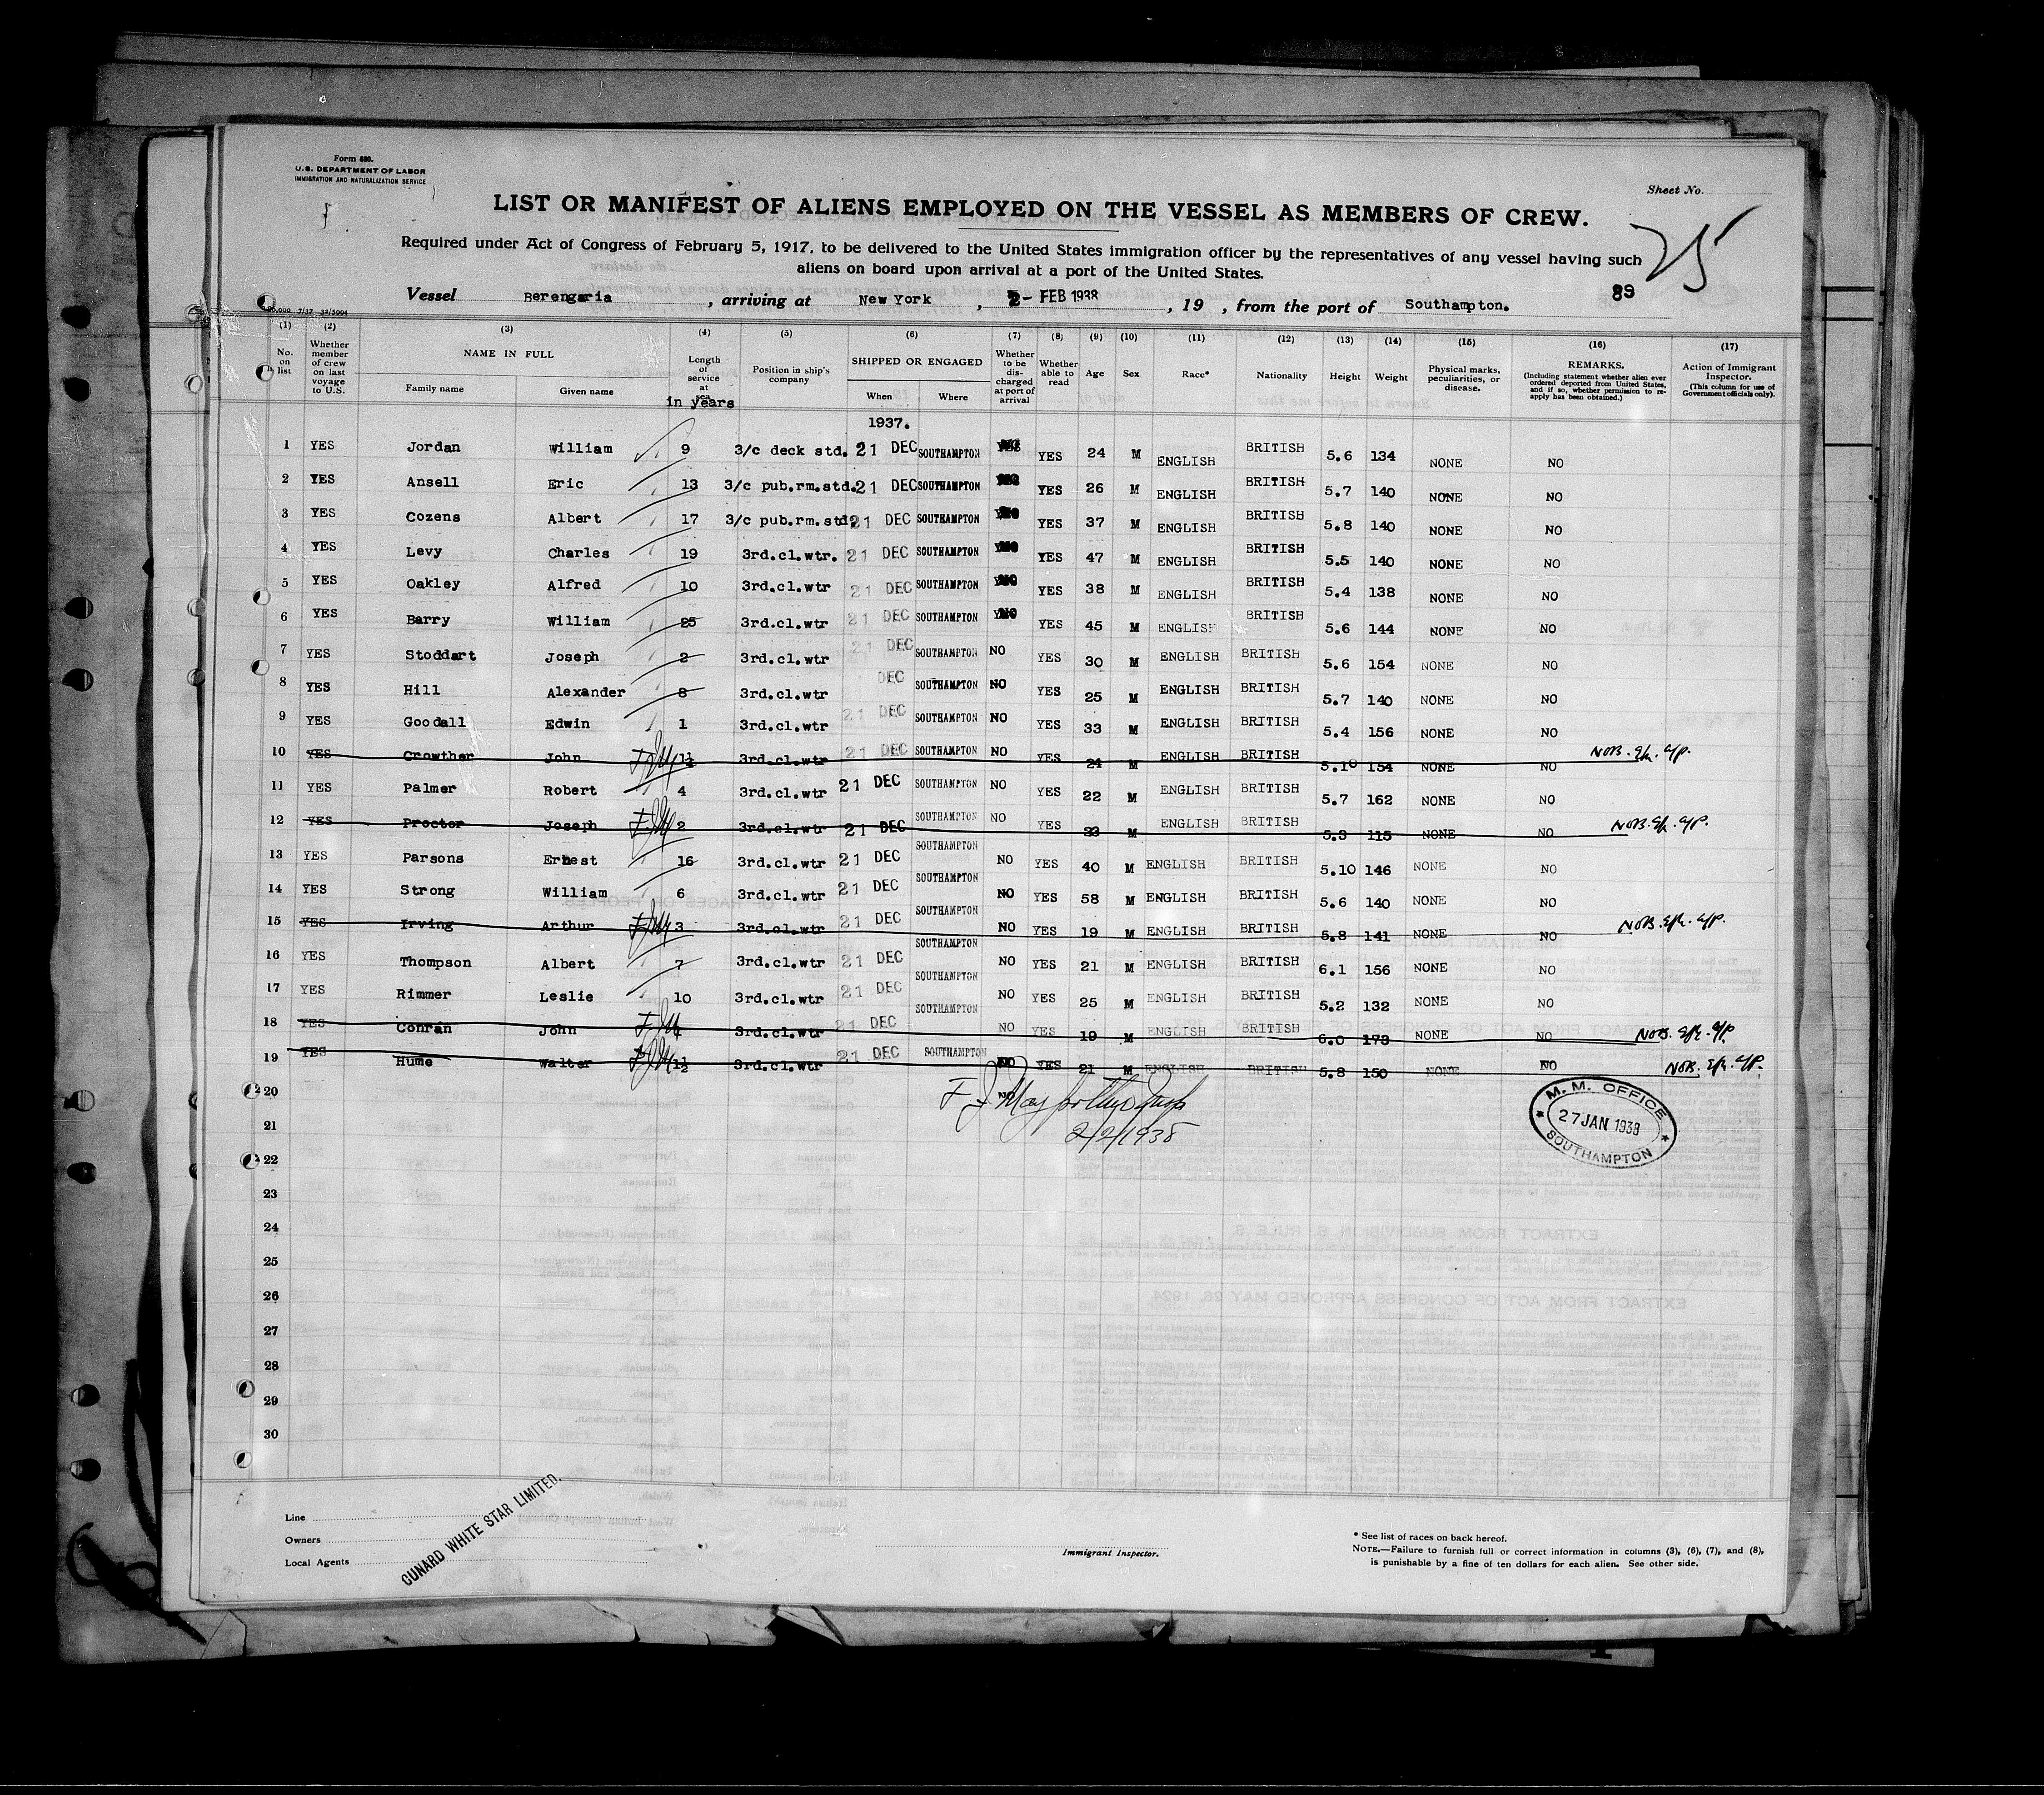 Form 680.
U.S. DEPARTMENT OF LABOR
IMMIGRATION AND NATURALIZATION SERVICE
Sheet No.
LIST OR MANIFEST OF ALIENS EMPLOYED ON THE VESSEL AS MEMBERS OF CREW.
25
Required under Act of Congress of February 5, 1917, to be delivered to the United States immigration officer by the representatives of any vessel having such
aliens on board upon arrival at a port of the United States.
89
Vessel Berengaria, arriving at New York, 2- FEB 1938, 19 , from the port of Southampton.
(1) (2) (3) (4) (5) (6) (7) (8) (9) (10) (11) (12) (13) (14) (15) (16) (17)
No. on list Whether member of crew on last voyage to U.S. NAME IN FULL Family name Given name Length of service at sea in years Position in ship's company SHIPPED OR ENGAGED When Where Whether to be discharged at port of arrival Whether able to read Age Sex Race* Nationality Height Weight Physical marks, peculiarities, or disease. REMARKS. (Including statement whether alien ever ordered deported from United States, and if so, whether permission to re-apply has been obtained.) Action of Immigrant Inspector. (This column for use of Government officials only).
1937.
1 YES Jordan William 9 3/c deck std. 21 DEC SOUTHAMPTON YES 24 M ENGLISH BRITISH 5.6 134 NONE NO
2 YES Ansell Eric 13 3/c pub.rm.std. 21 DEC SOUTHAMPTON YES 26 M ENGLISH BRITISH 5.7 140 NONE NO
3 YES Cozens Albert 17 3/c pub.rm.std. 21 DEC SOUTHAMPTON YES 37 M ENGLISH BRITISH 5.8 140 NONE NO
4 YES Levy Charles 19 3rd.cl.wtr. 21 DEC SOUTHAMPTON YES 47 M ENGLISH BRITISH 5.5 140 NONE NO
5 YES Oakley Alfred 10 3rd.cl.wtr 21 DEC SOUTHAMPTON YES 38 M ENGLISH BRITISH 5.4 138 NONE NO
6 YES Barry William 25 3rd.cl.wtr 21 DEC SOUTHAMPTON YES 45 M ENGLISH BRITISH 5.6 144 NONE NO
7 YES Stoddart Joseph 2 3rd.cl.wtr 21 DEC SOUTHAMPTON NO YES 30 M ENGLISH BRITISH 5.6 154 NONE NO
8 YES Hill Alexander 8 3rd.cl.wtr DEC SOUTHAMPTON NO YES 25 M ENGLISH BRITISH 5.7 140 NONE NO
9 YES Goodall Edwin 1 3rd.cl.wtr 21 DEC SOUTHAMPTON NO YES 33 M ENGLISH BRITISH 5.4 156 NONE NO
10 YES Crowther John 1½ 3rd.cl.wtr 21 DEC SOUTHAMPTON NO YES 24 M ENGLISH BRITISH 5.10 154 NONE NO
11 YES Palmer Robert 4 3rd.cl.wtr 21 DEC SOUTHAMPTON NO YES 22 M ENGLISH BRITISH 5.7 162 NONE NO
12 YES Proctor Joseph 2 3rd.cl.wtr 21 DEC SOUTHAMPTON NO YES 23 M ENGLISH BRITISH 5.3 115 NONE NO
13 YES Parsons Ernest 16 3rd.cl.wtr 21 DEC SOUTHAMPTON NO YES 40 M ENGLISH BRITISH 5.10 146 NONE NO
14 YES Strong William 6 3rd.cl.wtr 21 DEC SOUTHAMPTON NO YES 58 M ENGLISH BRITISH 5.6 140 NONE NO
15 YES Irving Arthur 3 3rd.cl.wtr 21 DEC SOUTHAMPTON NO YES 19 M ENGLISH BRITISH 5.8 141 NONE NO
16 YES Thompson Albert 7 3rd.cl.wtr 21 DEC SOUTHAMPTON NO YES 21 M ENGLISH BRITISH 6.1 156 NONE NO
17 YES Rimmer Leslie 10 3rd.cl.wtr 21 DEC SOUTHAMPTON NO YES 25 M ENGLISH BRITISH 5.2 132 NONE NO
18 YES Conran John 3rd.cl.wtr 21 DEC SOUTHAMPTON NO YES 19 M ENGLISH BRITISH 6.0 173 NONE NO
19 YES Hume Walter 1½ 3rd.cl.wtr 21 DEC SOUTHAMPTON NO YES 21 M ENGLISH BRITISH 5.8 150 NONE NO
20 NO
F J May
2/2/1938
M. M. OFFICE
27 JAN 1938
SOUTHAMPTON
21
22
23
24
25
26
27
28
29
30
Line
Owners
Local Agents
CUNARD WHITE STAR LIMITED.
Immigrant Inspector.
* See list of races on back hereof.
NOTE.—Failure to furnish full or correct information in columns (3), (6), (7), and (8),
is punishable by a fine of ten dollars for each alien. See other side.